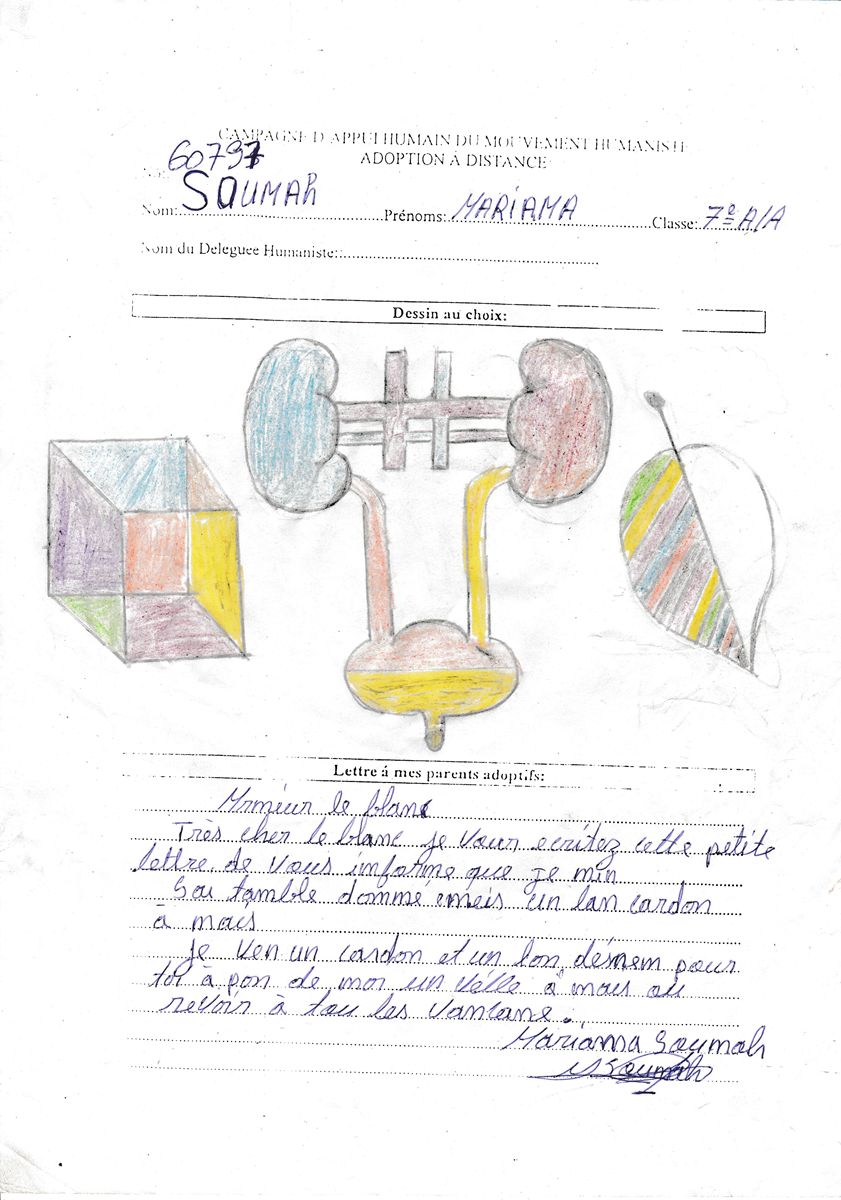 CAMPAGNE D'APPUI HUMAIN DU MOUVEMENT HUMANISTE
ADOPTION À DISTANCE
No: 60797
Nom: SOUMAH Prénoms: MARIAMA Classe: 7e A/A
Nom du Deleguee Humaniste::
Dessin au choix:
Lettre á mes parents adoptifs:
le blanc
Très cher le blanc je vour ecritez cette petite
lettre de vous imforme que je min
Sou tamble domme emeis un lan cardon
à maus
je ven un cardon et un lon désnem pour
toi à pon de mor un à maus au
revoir à tou les vancane.
Mariama Soumah
Soumah